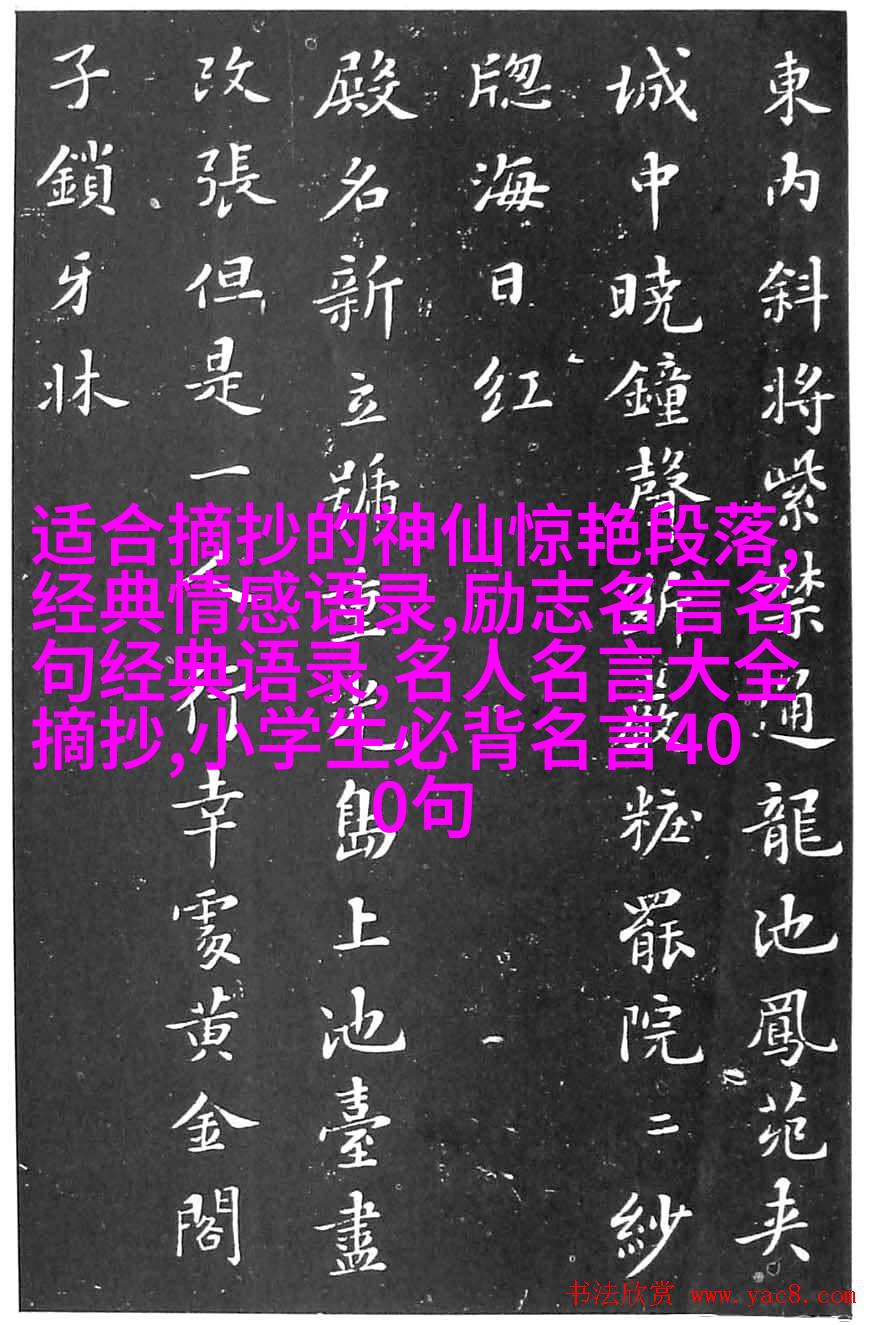 東内斜将紫禁通龍池鳳苑夹
城中暁鐘聲断嚴粧罷院二紗
牕海日红
殿名新立號重光島上池臺盡
改張但是一人行幸處黄金閣
子鎖牙牀
适合摘抄的神仙惊艳段落,
经典情感语录,励志名言名
句经典语录,名人名言大全
摘抄,小学生必背名言40
0句
书法欣赏 www.yac8.com